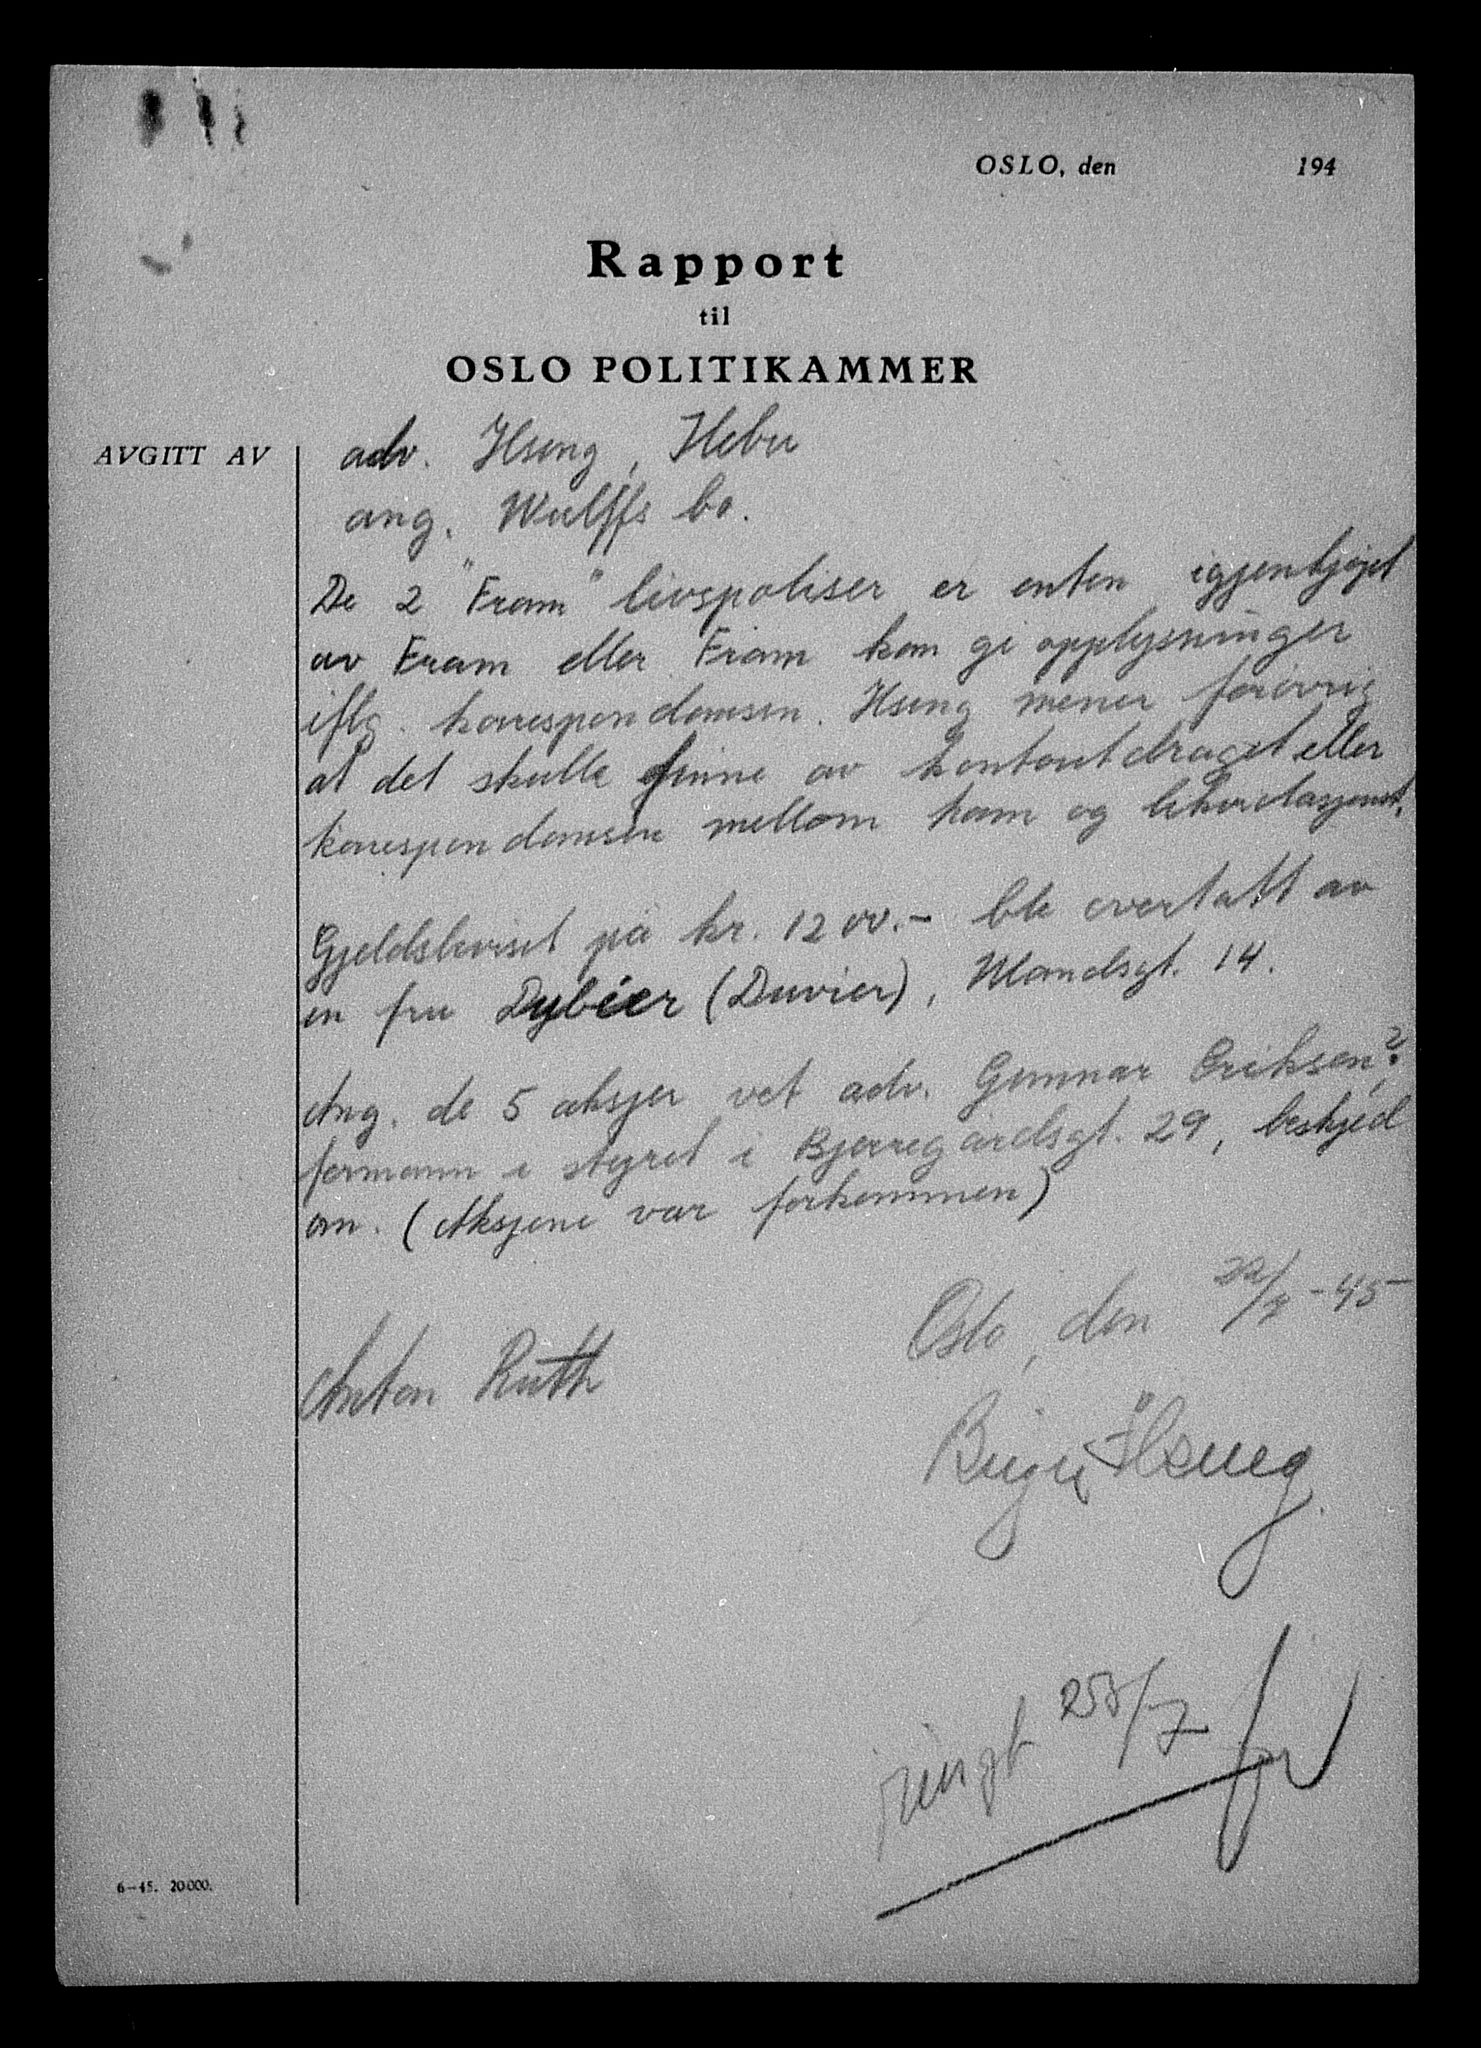 OSLO, den 194
Rapport
til
OSLO POLITIKAMMER
AVGITT AV
adv. Hseng, Heber
ang. Wulffs bo.
De 2 "Fram" livspoliser er enten igjenkjøpt
av Fram eller Fram kan gi opplysninger
iflg. korrespondansen. Hseng mener forøvrig
at det skulle finne av kontoutdraget eller
korrespondansen mellom ham og likvidasjonst.
Gjeldsbeviset på kr. 1200.- ble overtatt av
en fru Dybier (Duvier), Mandsgt. 14.
Ang. de 5 aksjer vet adv. Gunnar Eriksen?,
formann i styret i Bjerregårdsgt. 29, beskjed
om. (Aksjene var forkommen)
Oslo, den 22/ -45
Anton Ruth
Birger
25/7
6-45. 20 000.